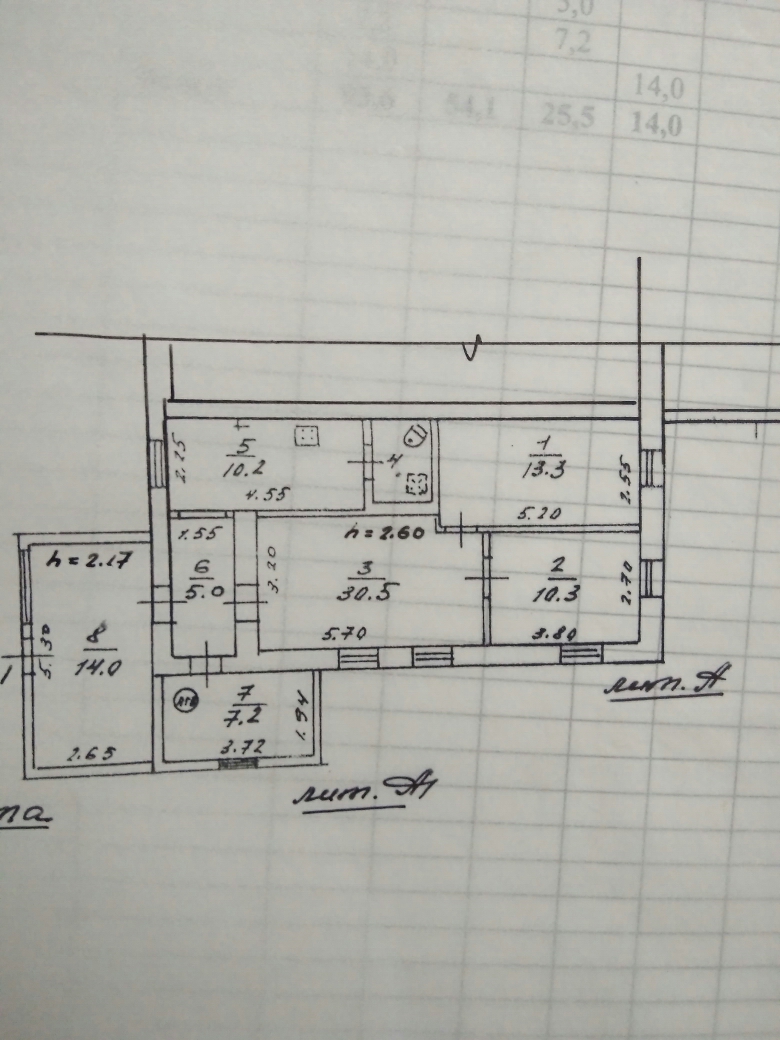 5,0
7,2
14,0
93,6 54,1 25,5 14,0
5
10.2
2.25
4.55
4
1
13.3
2.55
5.20
1.55
h = 2.60
6
5.0
3.20
3
30.5
5.70
2
10.3
2.70
3.80
h = 2.17
8
14.0
5.30
2.65
7
7.2
1.94
3.72
АГВ
лит. А
лит. А1